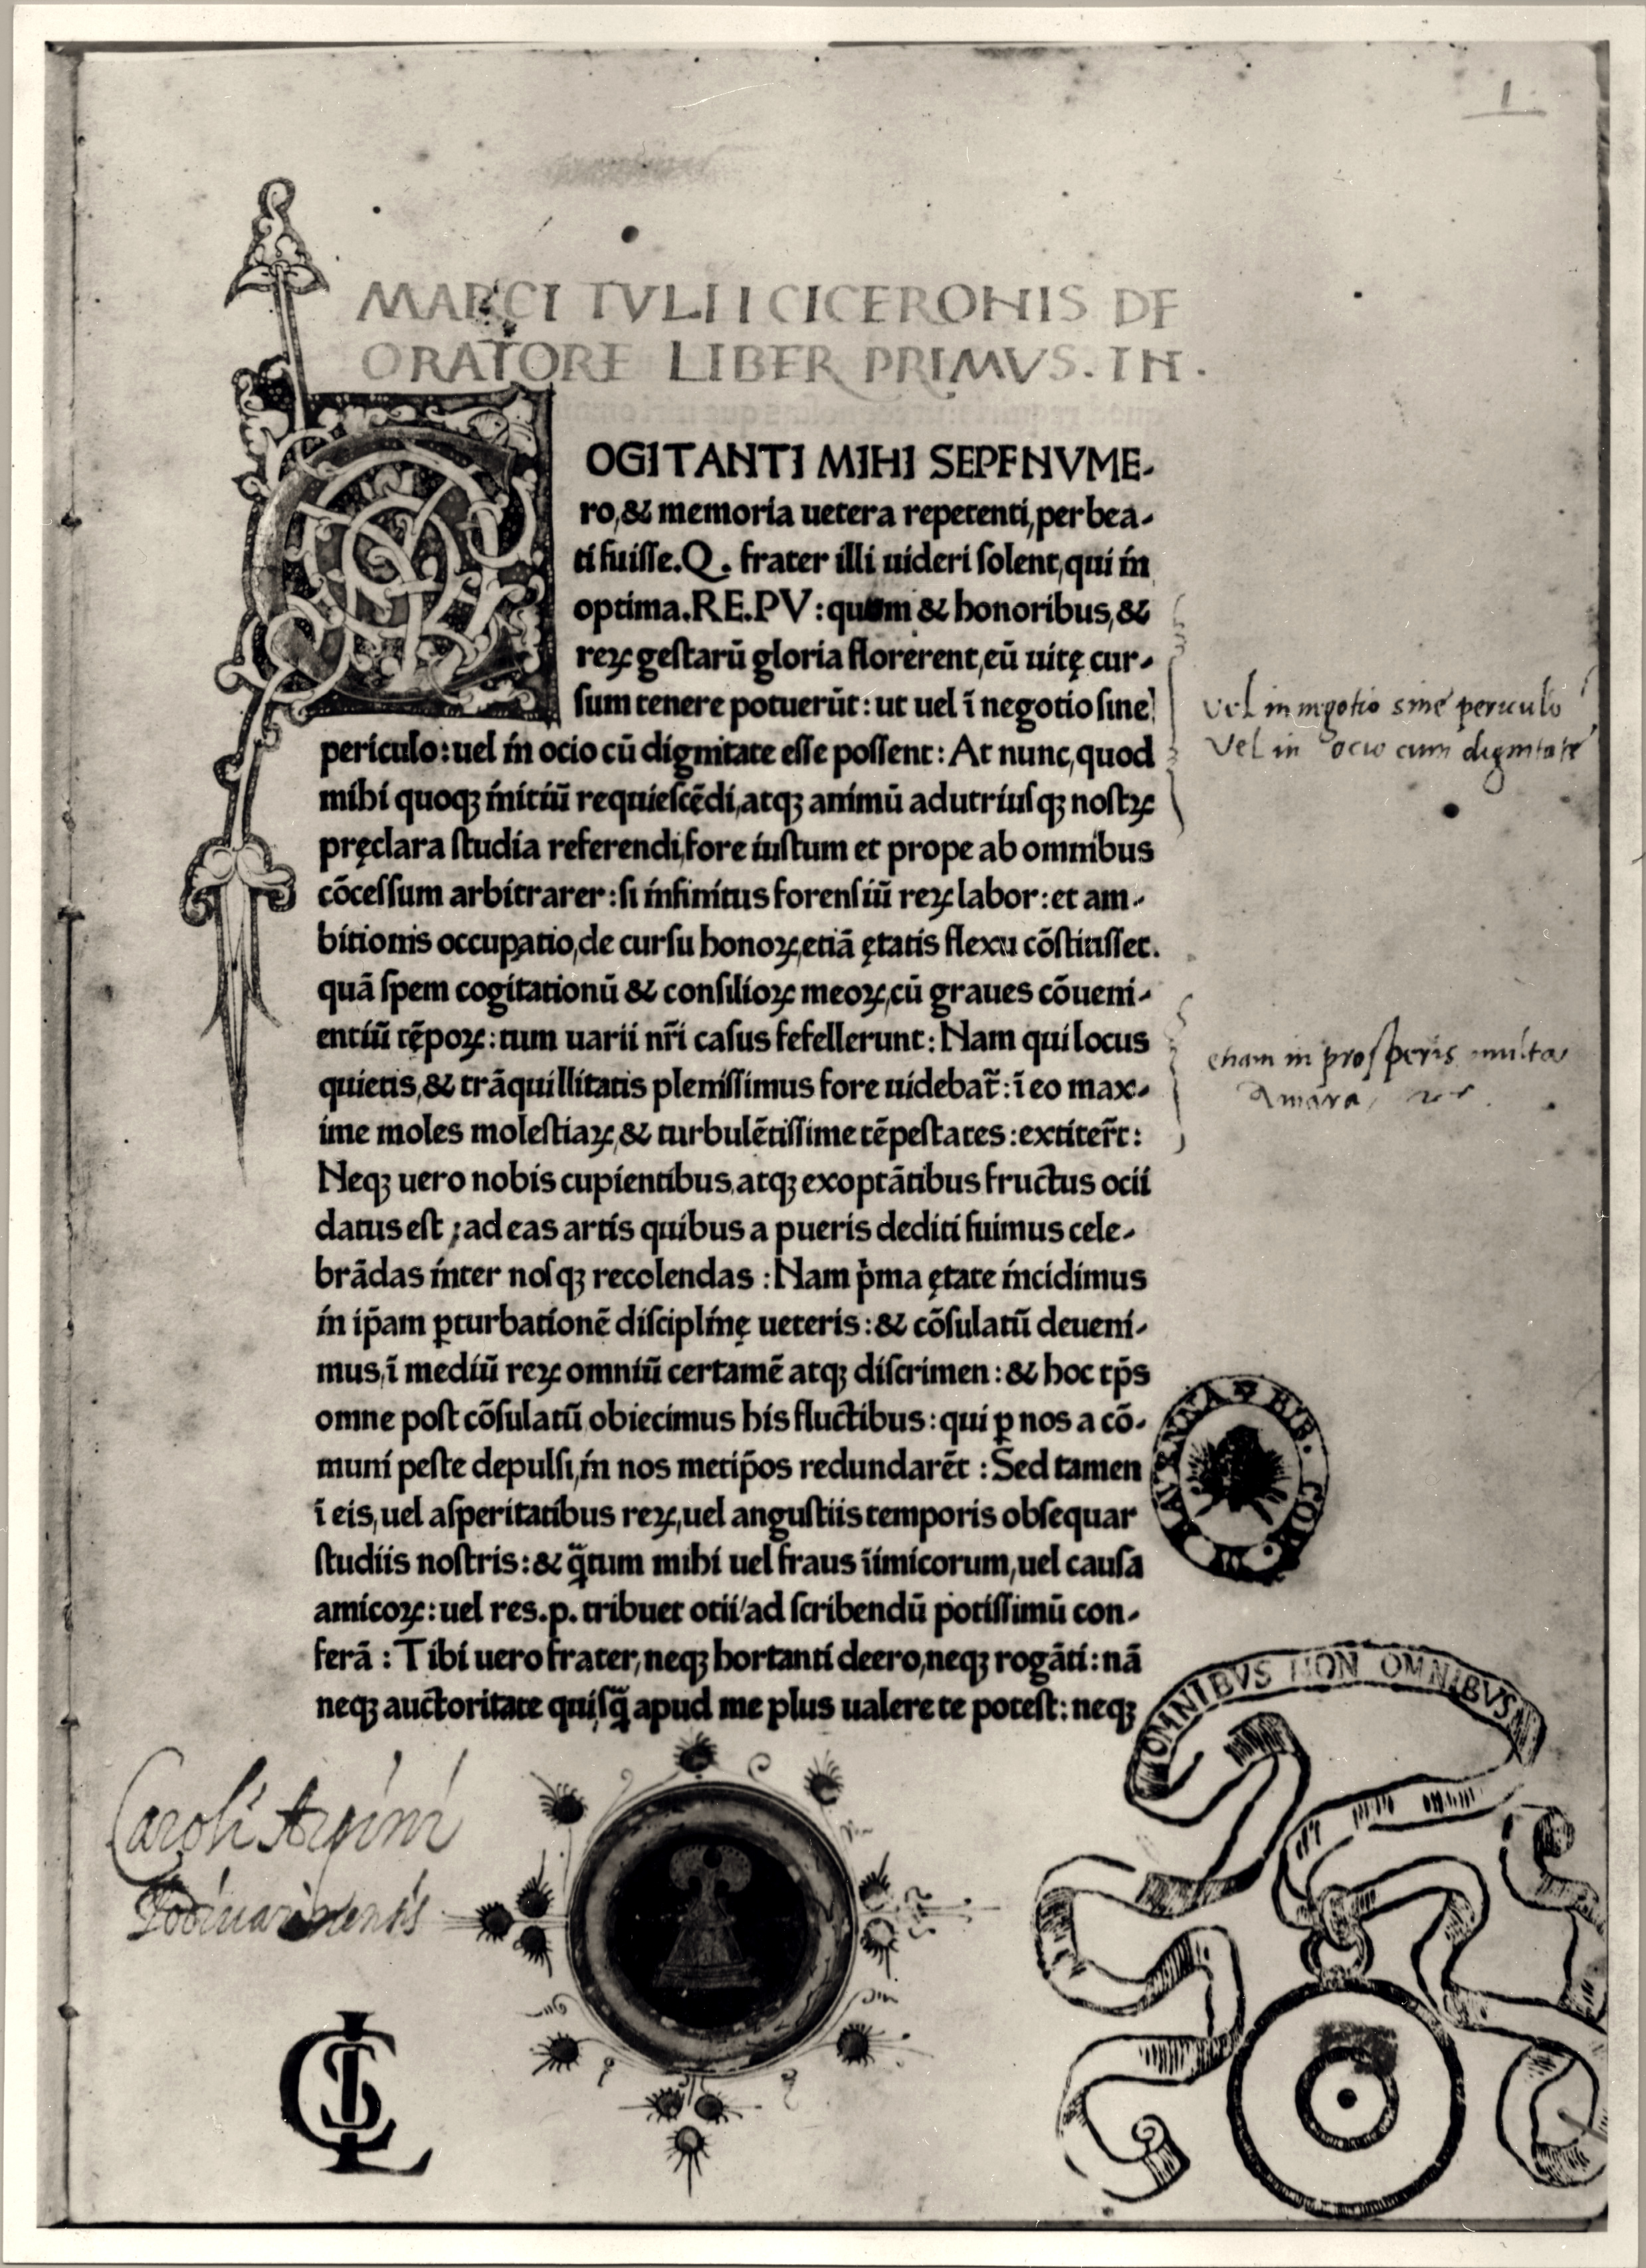 1
MARCI TVLII CICERONIS DE
ORATORE LIBER PRIMVS. IN.
OGITANTI MIHI SEPENVME-
ro, & memoria uetera repetenti, perbea-
ti fuisse. Q. frater illi uideri solent, qui in
optima. RE. PV: quom & honoribus, &
reꝝ gestarū gloria florerent, eū uitę cur-
sum tenere potuerūt: ut uel ī negotio sine
periculo: uel in ocio cū dignitate esse possent: At nunc, quod
mihi quoqꝫ initiū requiescēdi, atqꝫ animū ad utriusqꝫ nostꝝ
pręclara studia referendi, fore iustum et prope ab omnibus
cōcessum arbitrarer: si infinitus forensiū reꝝ labor: et am-
bitionis occupatio, de cursu honoꝝ, etiā ętatis flexu cōstitisset.
quā spem cogitationū & consilioꝝ meoꝝ, cū graues cōueni-
entiū tēpoꝝ: tum uarii nr̃i casus fefellerunt: Nam qui locus
quietis, & trāquillitatis plenissimus fore uidebat̃: ī eo max-
ime moles molestiaꝝ, & turbulētissime tēpestates: extiter̃t:
Neqꝫ uero nobis cupientibus, atqꝫ exoptātibus fructus ocii
datus est; ad eas artis quibus a pueris dediti fuimus cele-
brādas inter nosqꝫ recolendas: Nam p̃ma ętate incidimus
in ip̃am ꝑturbationē disciplinę ueteris: & cōsulatū deueni-
mus, ī mediū reꝝ omniū certamē atqꝫ discrimen: & hoc tp̃s
omne post cōsulatū obiecimus his fluctibus: qui ꝑ nos a cō-
muni peste depulsi, in nos metip̃os redundarēt: Sed tamen
ī eis, uel asperitatibus reꝝ, uel angustiis temporis obsequar
studiis nostris: & q̃tum mihi uel fraus īimicorum, uel causa
amicoꝝ: uel res. p. tribuet otii/ ad scribendū potissimū con-
ferā: Tibi uero frater, neqꝫ hortanti deero, neqꝫ rogāti: nā
neqꝫ auctoritate quisq̃ apud me plus ualere te potest: neqꝫ
Vel in negotio sine periculo
Vel in ocio cum dignitate
etiam in prosperis multa
Amara,
BIB. COM.
OMNIBVS NON OMNIBVS
Caroli